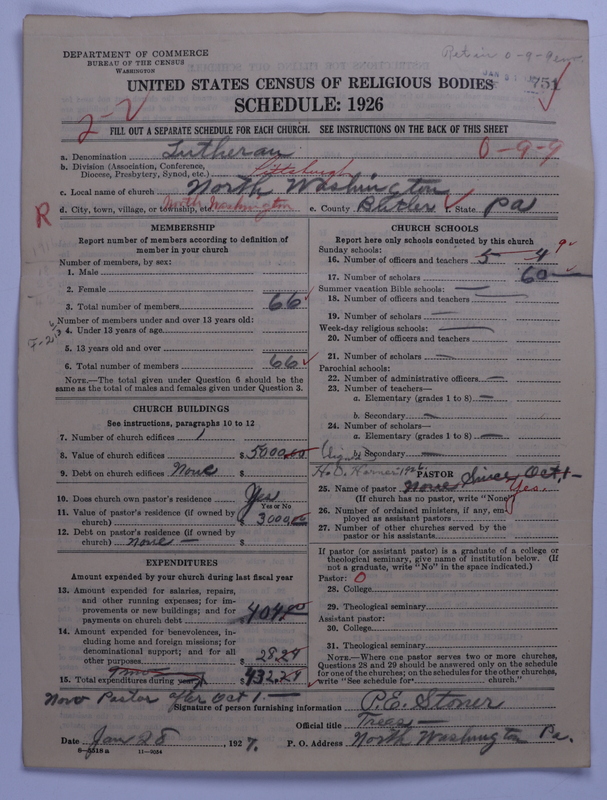 DEPARTMENT OF COMMERCE
BUREAU OF THE CENSUS
WASHINGTON
Retain 0-9-9
JAN 31
751
UNITED STATES CENSUS OF RELIGIOUS BODIES
SCHEDULE: 1926
2-2
FILL OUT A SEPARATE SCHEDULE FOR EACH CHURCH. SEE INSTRUCTIONS ON THE BACK OF THIS SHEET
a. Denomination Lutheran 0-9-9
b. Division (Association, Conference, Diocese, Presbytery, Synod, etc.) Pittsburgh
c. Local name of church North Washington
R
d. City, town, village, or township, etc. North Washington e. County Butler f. State Pa
MEMBERSHIP
Report number of members according to definition of
member in your church
Number of members, by sex:
1. Male
2. Female
3. Total number of members 66
Number of members under and over 13 years old:
4. Under 13 years of age
5. 13 years old and over
6. Total number of members 66
NOTE.—The total given under Question 6 should be
same as the total of males and females given under Question 3.
CHURCH BUILDINGS
See instructions, paragraphs 10 to 12
7. Number of church edifices 1
8. Value of church edifices $ 5000.00
9. Debt on church edifices None $
10. Does church own pastor's residence Yes
Yes or No
11. Value of pastor's residence (if owned by
church) $ 3000.00
12. Debt on pastor's residence (if owned by
church) None — $
EXPENDITURES
Amount expended by your church during last fiscal year
13. Amount expended for salaries, repairs,
and other running expenses; for im-
provements or new buildings; and for
payments on church debt $ 404.00
14. Amount expended for benevolences, in-
cluding home and foreign missions; for
denominational support; and for all
other purposes $ 28.29
15. Total expenditures during year $ 432.29
CHURCH SCHOOLS
Report here only schools conducted by this church
Sunday schools:
16. Number of officers and teachers 5 4 9
17. Number of scholars 60
Summer vacation Bible schools: —
18. Number of officers and teachers
19. Number of scholars —
Week-day religious schools: —
20. Number of officers and teachers
21. Number of scholars —
Parochial schools:
22. Number of administrative officers —
23. Number of teachers—
a. Elementary (grades 1 to 8) —
b. Secondary —
24. Number of scholars—
a. Elementary (grades 1 to 8) —
b. Secondary —
H.O. Horner 1926 PASTOR Since Oct 1 —
25. Name of pastor None Yes.
(If church has no pastor, write "None")
26. Number of ordained ministers, if any, em-
ployed as assistant pastors
27. Number of other churches served by the
pastor or his assistants
If pastor (or assistant pastor) is a graduate of a college or
theological seminary, give name of institution below. (If
not a graduate, write "No" in the space indicated.)
Pastor: 0
28. College
29. Theological seminary
Assistant pastor:
30. College
31. Theological seminary
NOTE.—Where one pastor serves two or more churches,
Questions 28 and 29 should be answered only on the schedule
for one of the churches; on the schedules for the other churches,
write "See schedule for church."
Now Pastor after Oct 1. —
Signature of person furnishing information P.E. Stoner
Official title Treas —
Date Jan 28, 1927. P. O. Address North Washington Pa.
8—5518 a 11—9034